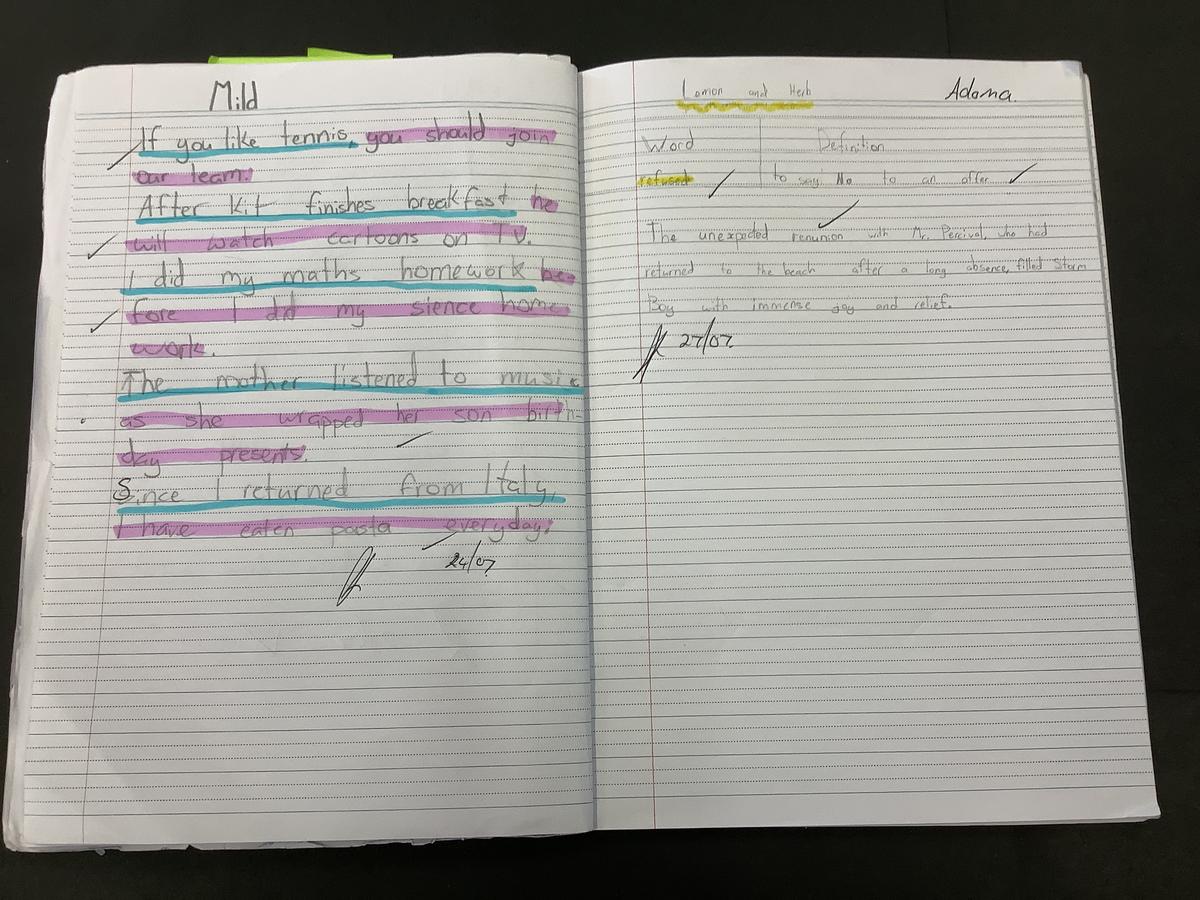 Mild
If you like tennis, you should join
our team.
After Kit finishes breakfast he
will watch cartoons on TV.
I did my maths homework be
fore I did my sience home
work.
The mother listened to music
as she wrapped her son birth-
day presents.
Since I returned from Italy,
I have eaten pasta everyday.
24/07
Lemon and Herb
Adama.
Word Definition
refused to say No to an offer
The unexpected renunion with Mr. Percival, who had
returned to the beach after a long absence, filled Storm
Boy with immense joy and relief.
27/07